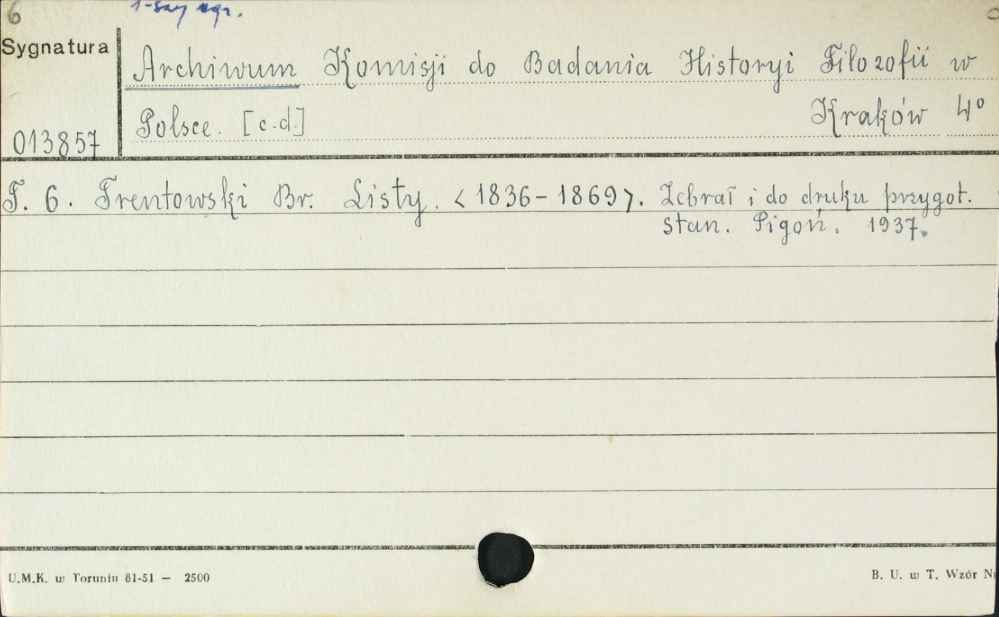 6 1-szy egz.
Sygnatura
Archiwum Komisji do Badania Historyi Filozofii w
Polsce. [c.d.] Kraków 4°
013857
T. 6. Trentowski Br. Listy. <1836-1869>. Zebrał i do druku przygot.
Stan. Pigoń. 1937.
U.M.K. w Toruniu 61-51 — 2500
B. U. w T. Wzór